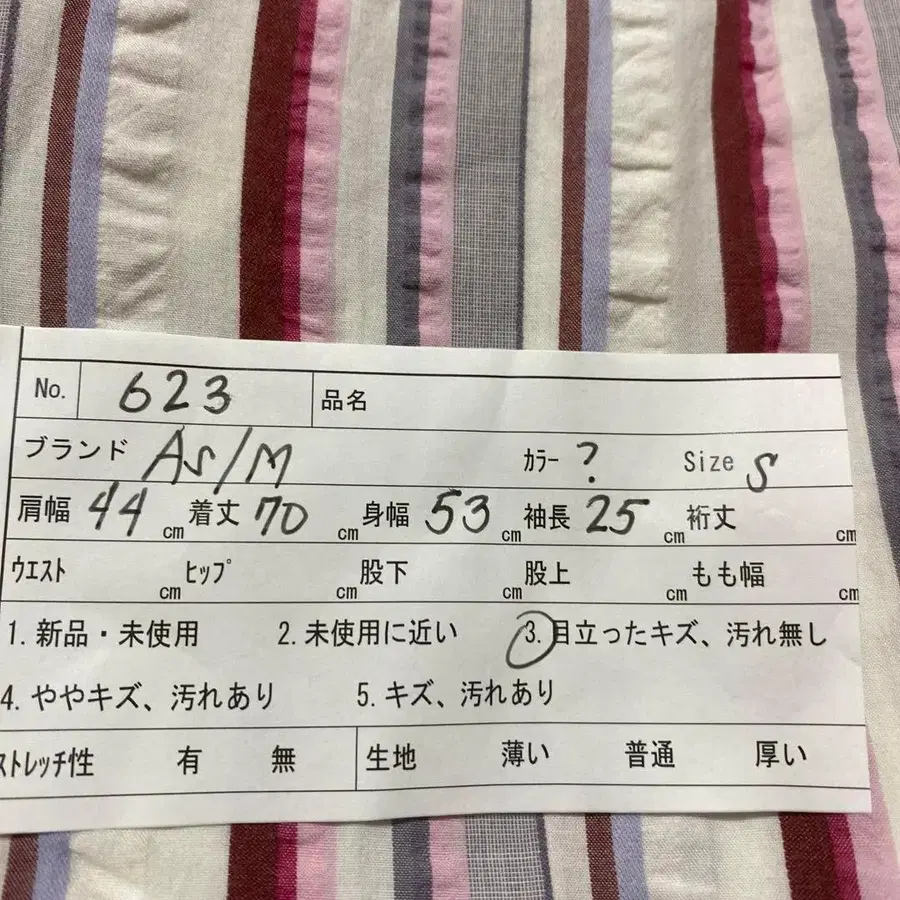 No. 623 品名
ブランド As/M カラー ? Size S
肩幅 44 cm 着丈 70 cm 身幅 53 cm 袖長 25 cm 裄丈 cm
ウエスト cm ヒップ cm 股下 cm 股上 cm もも幅 cm
1. 新品・未使用 2. 未使用に近い 3. 目立ったキズ、汚れ無し
4. ややキズ、汚れあり 5. キズ、汚れあり
ストレッチ性 有 無 生地 薄い 普通 厚い